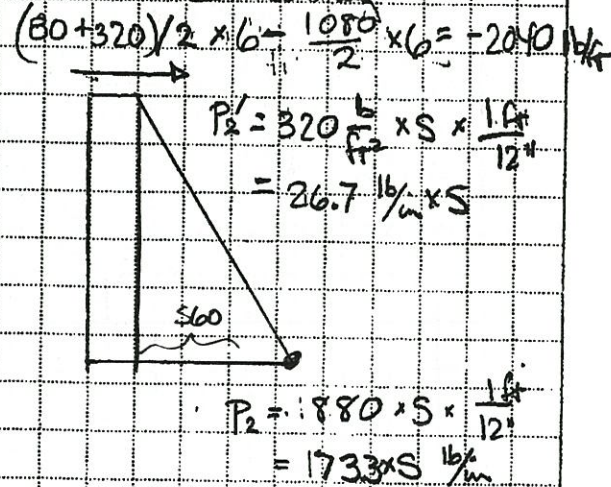 (80+320)/2 × 6 - 1080/2 × 6 = -2040 lb/ft
P₂' = 320 lb/ft² × S × 1 ft/12"
= 26.7 lb/in × S
560
P₂ = 880 × S × 1 ft/12"
= 173.3 × S lb/in